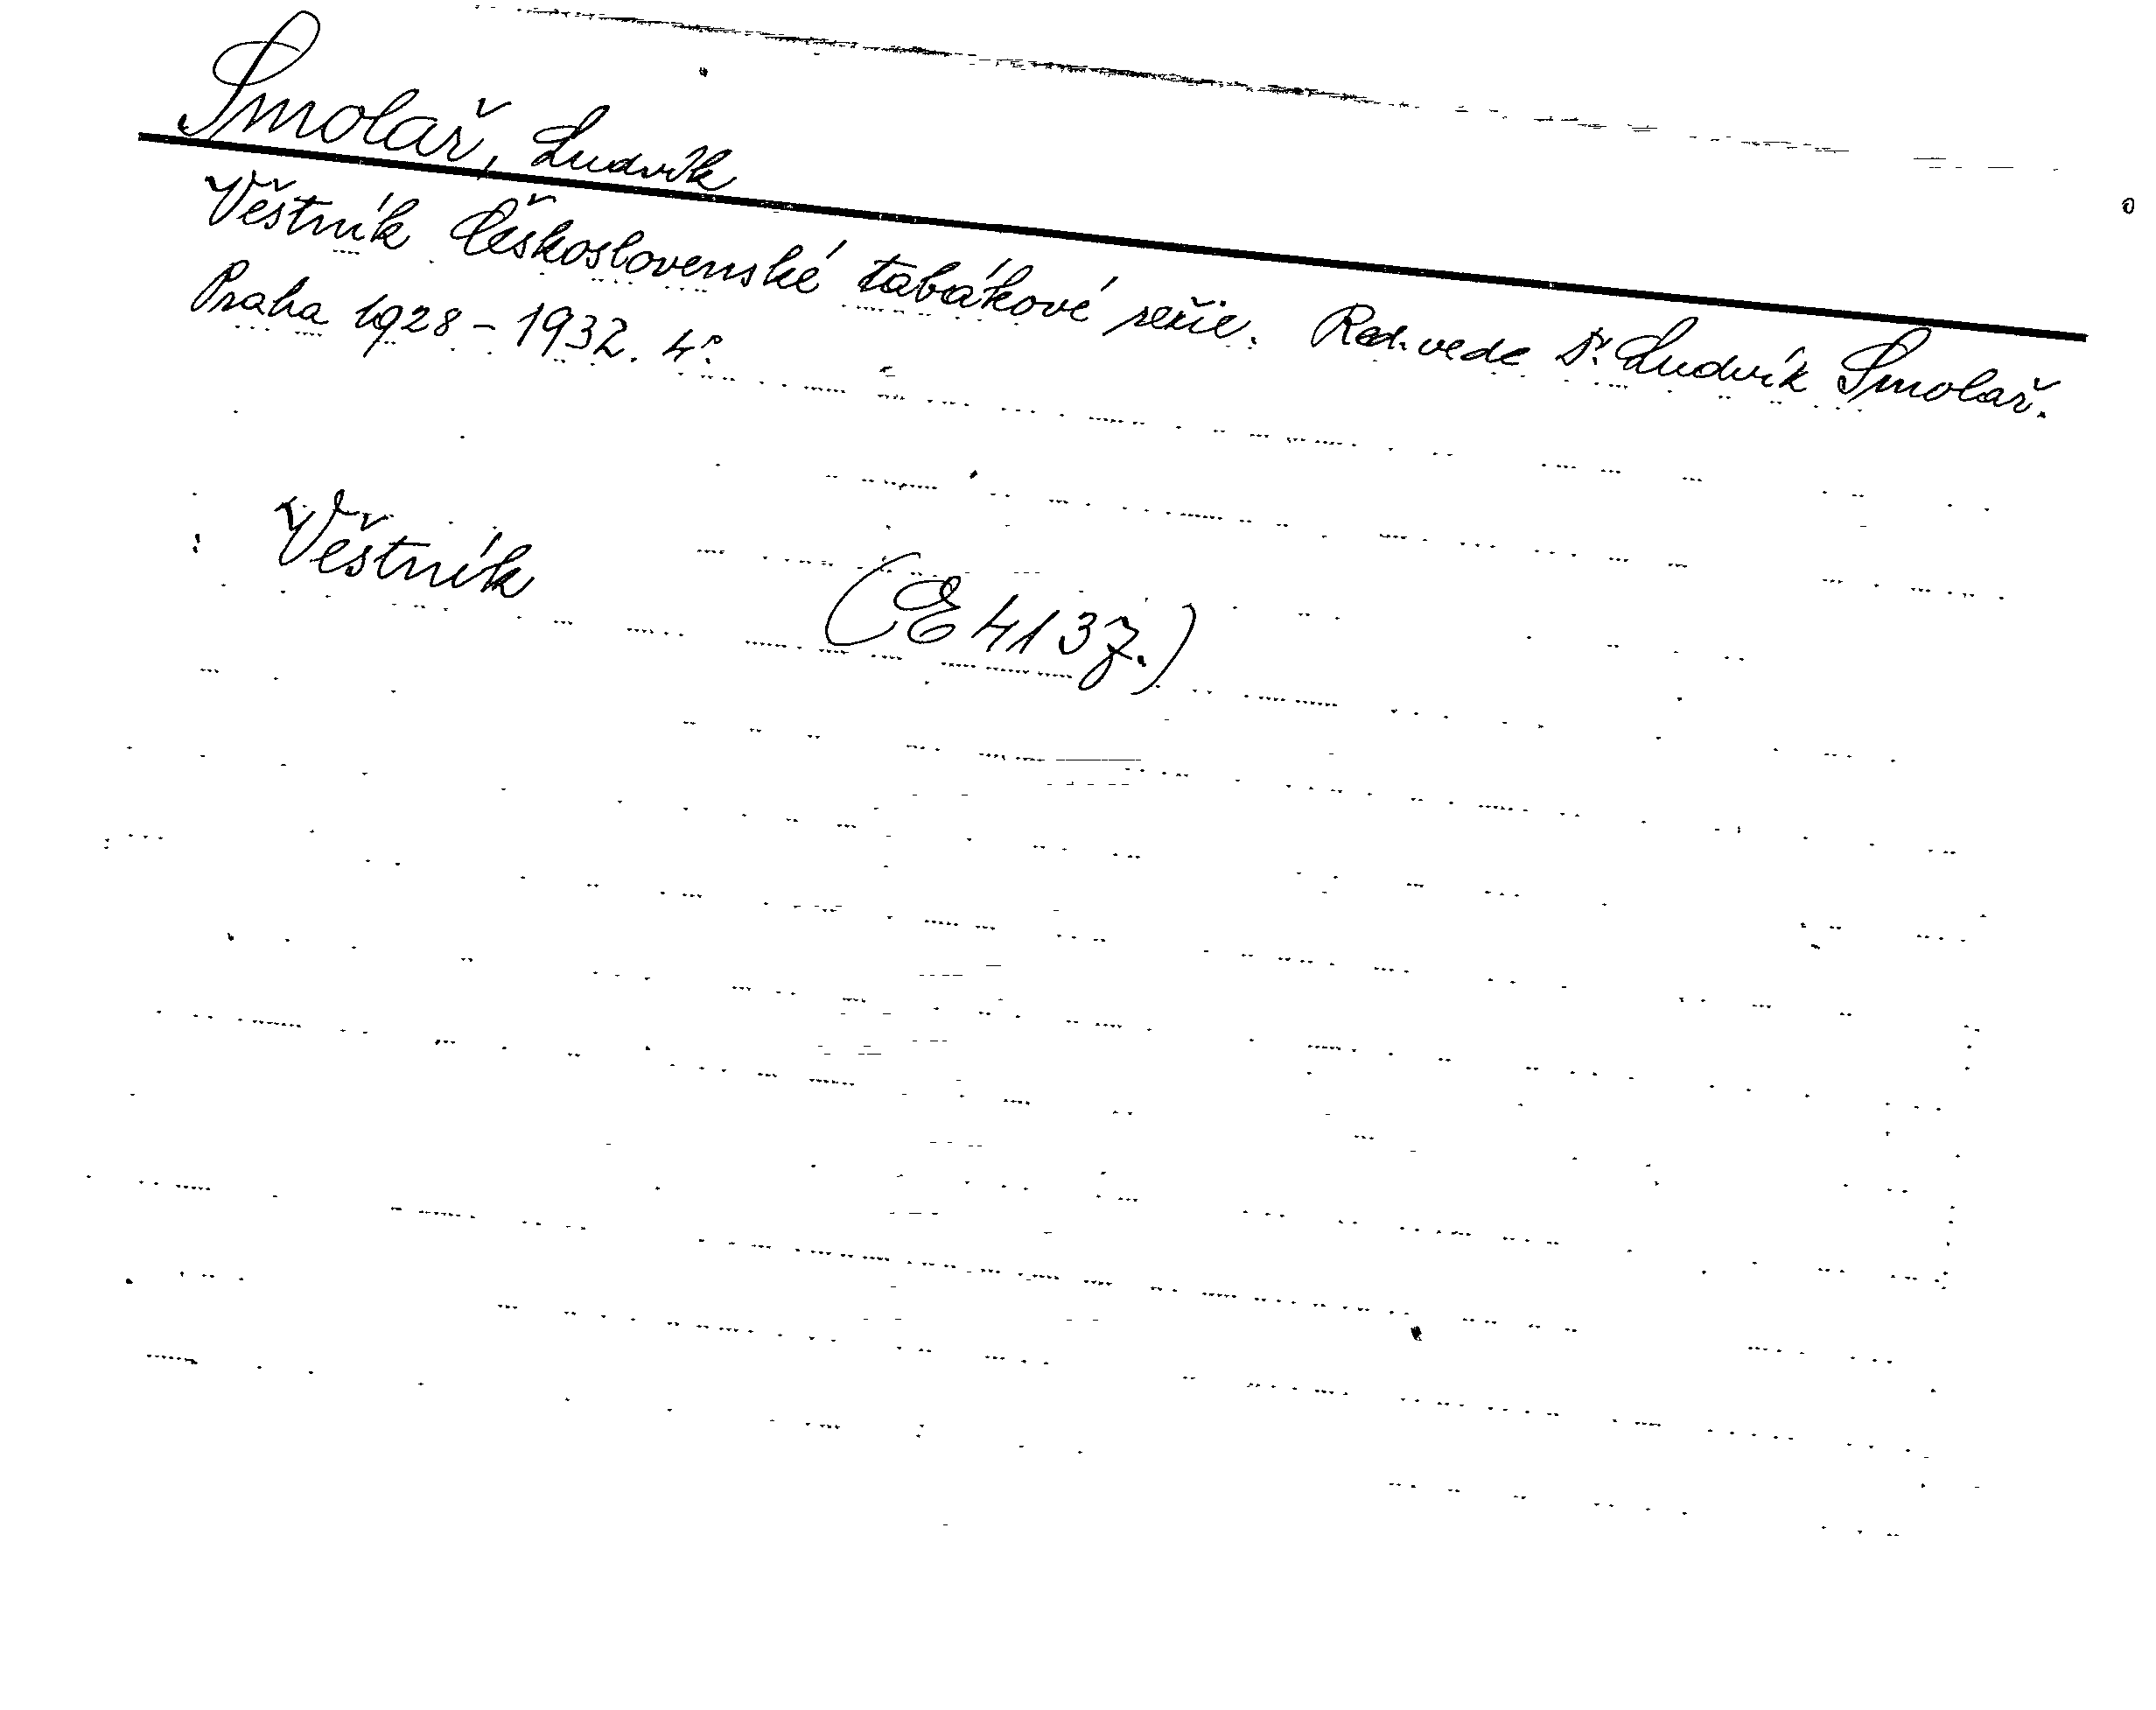 Smolař, Ludvík
Věstník Československé tabákové režie. Red. vede Dr. Ludvík Smolař.
Praha 1928-1932. 4°.
Věstník (E 4137.)